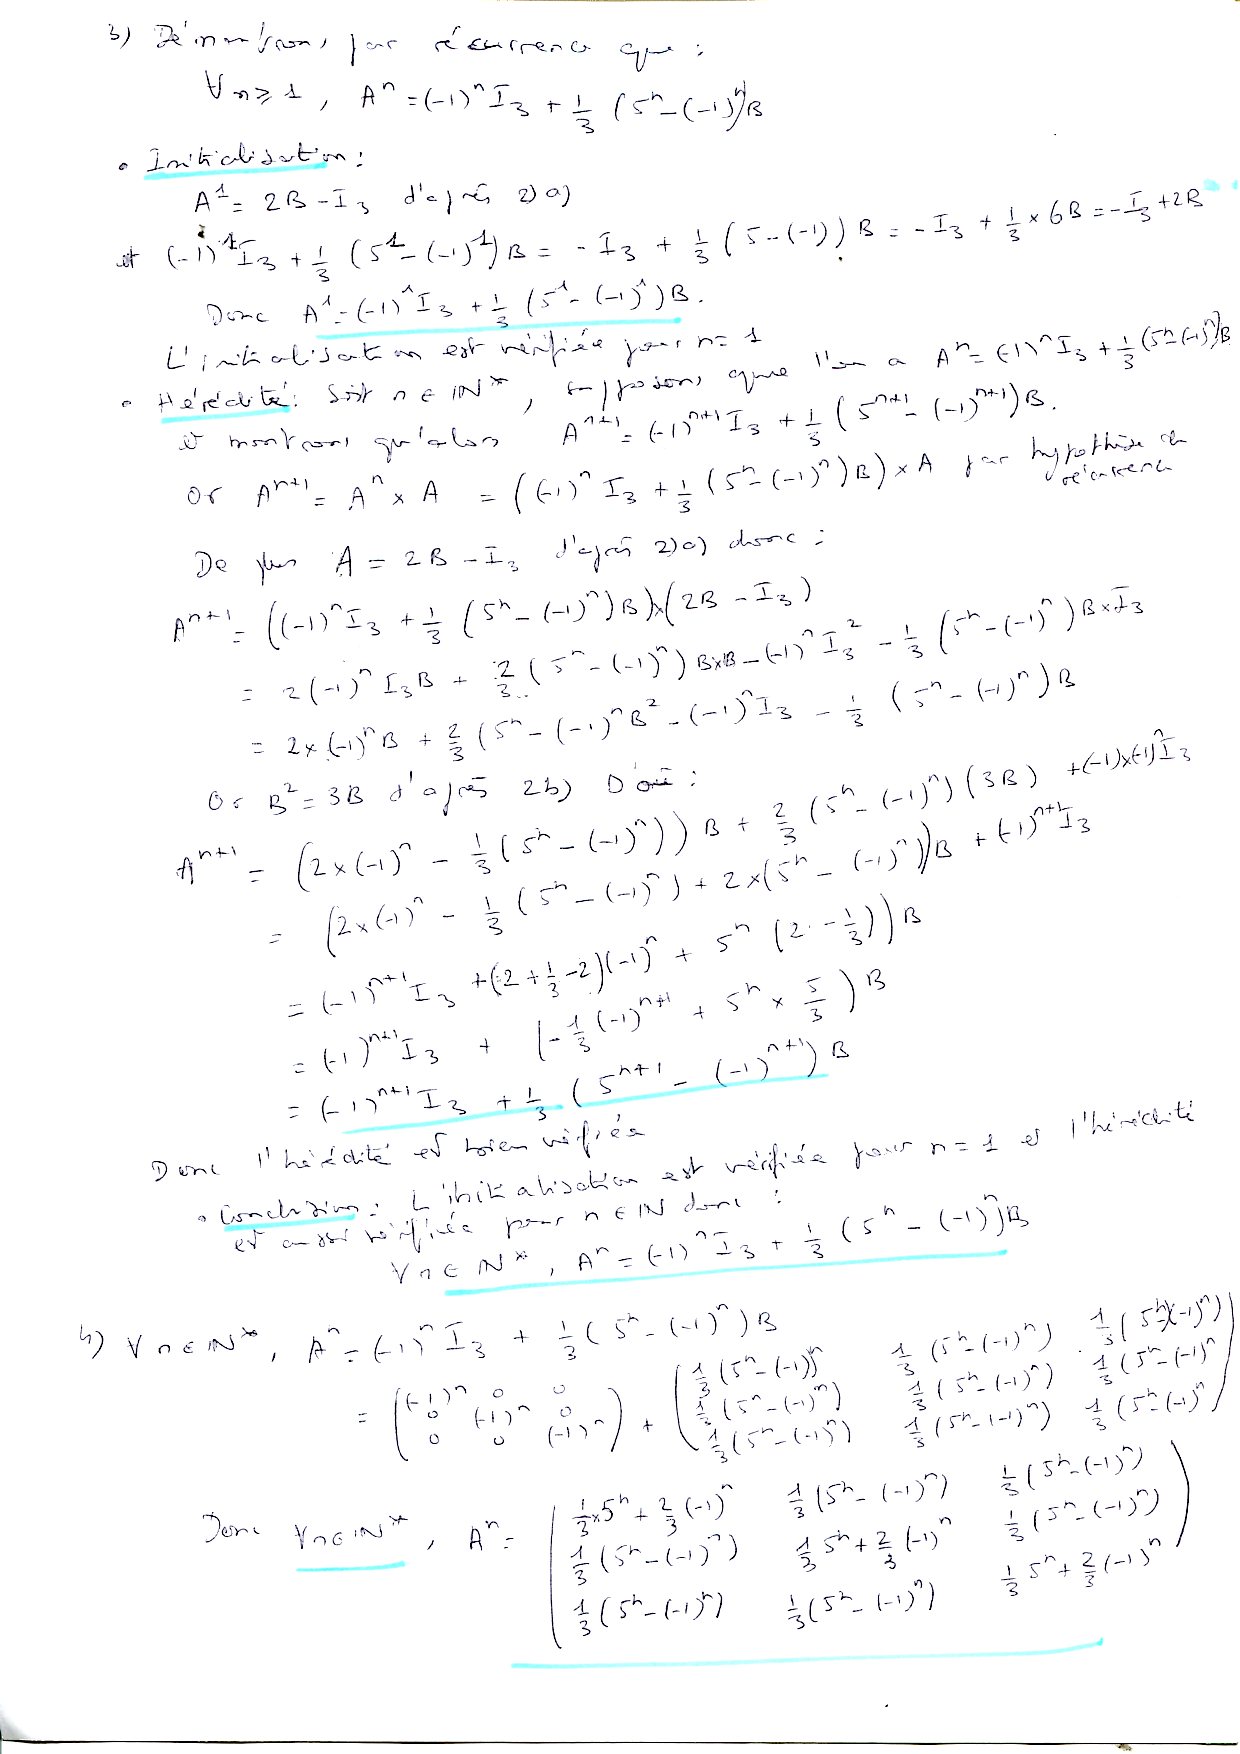 3) Démontrons par récurrence que :
∀ n ≥ 1, A^n = (-1)^n I_3 + 1/3 (5^n - (-1)^n) B
• Initialisation :
A^1 = 2B - I_3 d'après 2)a)
et (-1)^1 I_3 + 1/3 (5^1 - (-1)^1) B = - I_3 + 1/3 (5 - (-1)) B = - I_3 + 1/3 × 6B = - I_3 + 2B
Donc A^1 = (-1)^1 I_3 + 1/3 (5^1 - (-1)^1) B.
L'initialisation est vérifiée pour n = 1
• Hérédité : Soit n ∈ IN*, supposons que l'on a A^n = (-1)^n I_3 + 1/3 (5^n - (-1)^n) B
et montrons qu'alors A^{n+1} = (-1)^{n+1} I_3 + 1/3 (5^{n+1} - (-1)^{n+1}) B.
Or A^{n+1} = A^n × A = ((-1)^n I_3 + 1/3 (5^n - (-1)^n) B) × A par hypothèse de récurrence
De plus A = 2B - I_3 d'après 2)a) donc :
A^{n+1} = ((-1)^n I_3 + 1/3 (5^n - (-1)^n) B) × (2B - I_3)
= 2 (-1)^n I_3 B + 2/3 (5^n - (-1)^n) B×B - (-1)^n I_3^2 - 1/3 (5^n - (-1)^n) B × I_3
= 2 × (-1)^n B + 2/3 (5^n - (-1)^n B^2 - (-1)^n I_3 - 1/3 (5^n - (-1)^n) B
Or B^2 = 3B d'après 2b) D'où :
A^{n+1} = (2 × (-1)^n - 1/3 (5^n - (-1)^n)) B + 2/3 (5^n - (-1)^n) (3B) + (-1)×(-1)^n I_3
= (2 × (-1)^n - 1/3 (5^n - (-1)^n) + 2 × (5^n - (-1)^n)) B + (-1)^{n+1} I_3
= (-1)^{n+1} I_3 + (2 + 1/3 - 2) (-1)^n + 5^n (2 - 1/3)) B
= (-1)^{n+1} I_3 + (- 1/3 (-1)^{n+1} + 5^n × 5/3) B
= (-1)^{n+1} I_3 + 1/3 (5^{n+1} - (-1)^{n+1}) B
Donc l'hérédité est bien vérifiée
• Conclusion : L'initialisation est vérifiée pour n = 1 et l'hérédité
est aussi vérifiée pour n ∈ IN donc :
∀ n ∈ IN*, A^n = (-1)^n I_3 + 1/3 (5^n - (-1)^n) B
4) ∀ n ∈ IN*, A^n = (-1)^n I_3 + 1/3 (5^n - (-1)^n) B
= ( (-1)^n 0 0 ) + ( 1/3 (5^n - (-1))^n 1/3 (5^n - (-1)^n) 1/3 (5^n - (-1)^n) )
( 0 (-1)^n 0 ) ( 1/3 (5^n - (-1)^n) 1/3 (5^n - (-1)^n) 1/3 (5^n - (-1)^n )
( 0 0 (-1)^n ) ( 1/3 (5^n - (-1)^n) 1/3 (5^n - (-1)^n) 1/3 (5^n - (-1)^n) )
Donc ∀ n ∈ IN*, A^n = ( 1/3 × 5^n + 2/3 (-1)^n 1/3 (5^n - (-1)^n) 1/3 (5^n - (-1)^n) )
( 1/3 (5^n - (-1)^n) 1/3 5^n + 2/3 (-1)^n 1/3 (5^n - (-1)^n) )
( 1/3 (5^n - (-1)^n) 1/3 (5^n - (-1)^n) 1/3 5^n + 2/3 (-1)^n )